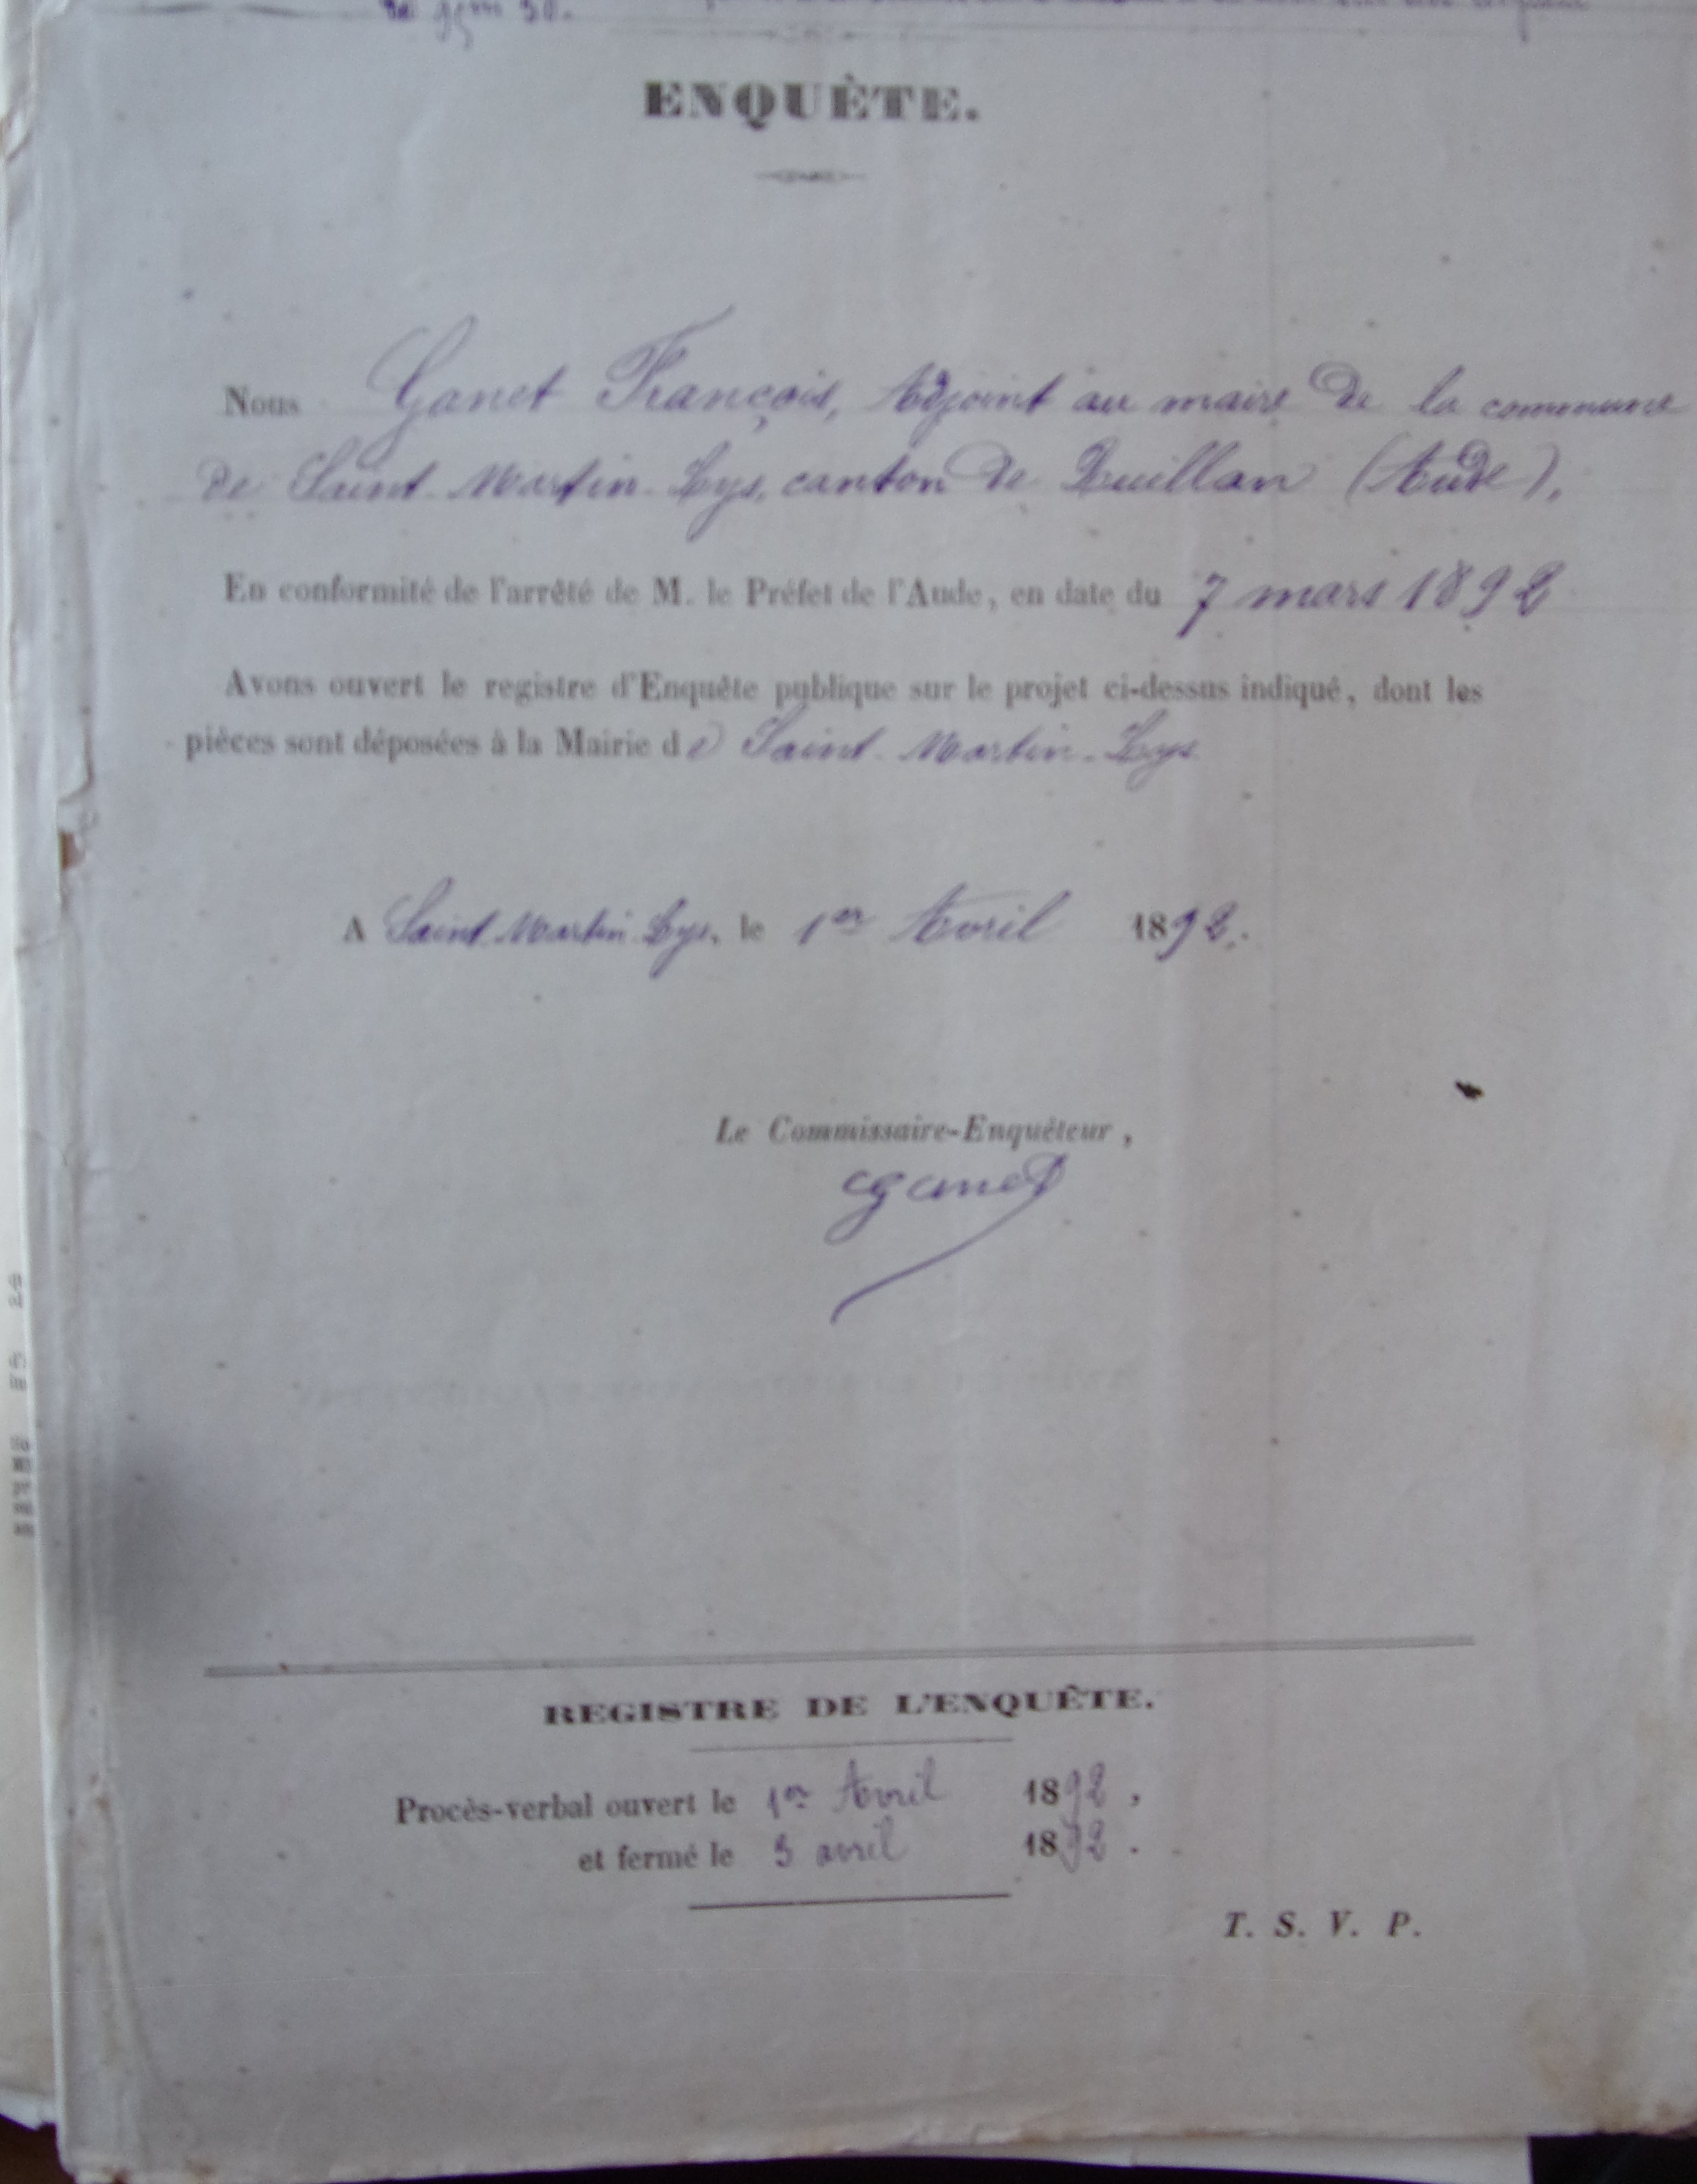 ENQUÊTE.
Nous Ganet François, Adjoint au maire de la commune
de Saint-Martin-Lys, canton de Quillan (Aude),
En conformité de l'arrêté de M. le Préfet de l'Aude, en date du 7 mars 1892
Avons ouvert le registre d'Enquête publique sur le projet ci-dessus indiqué, dont les
pièces sont déposées à la Mairie de Saint-Martin-Lys
A Saint Martin Lys, le 1er Avril 1892.
Le Commissaire-Enquêteur,
ganet
REGISTRE DE L'ENQUÊTE.
Procès-verbal ouvert le 1er Avril 1892,
et fermé le 3 avril 1892.
T. S. V. P.